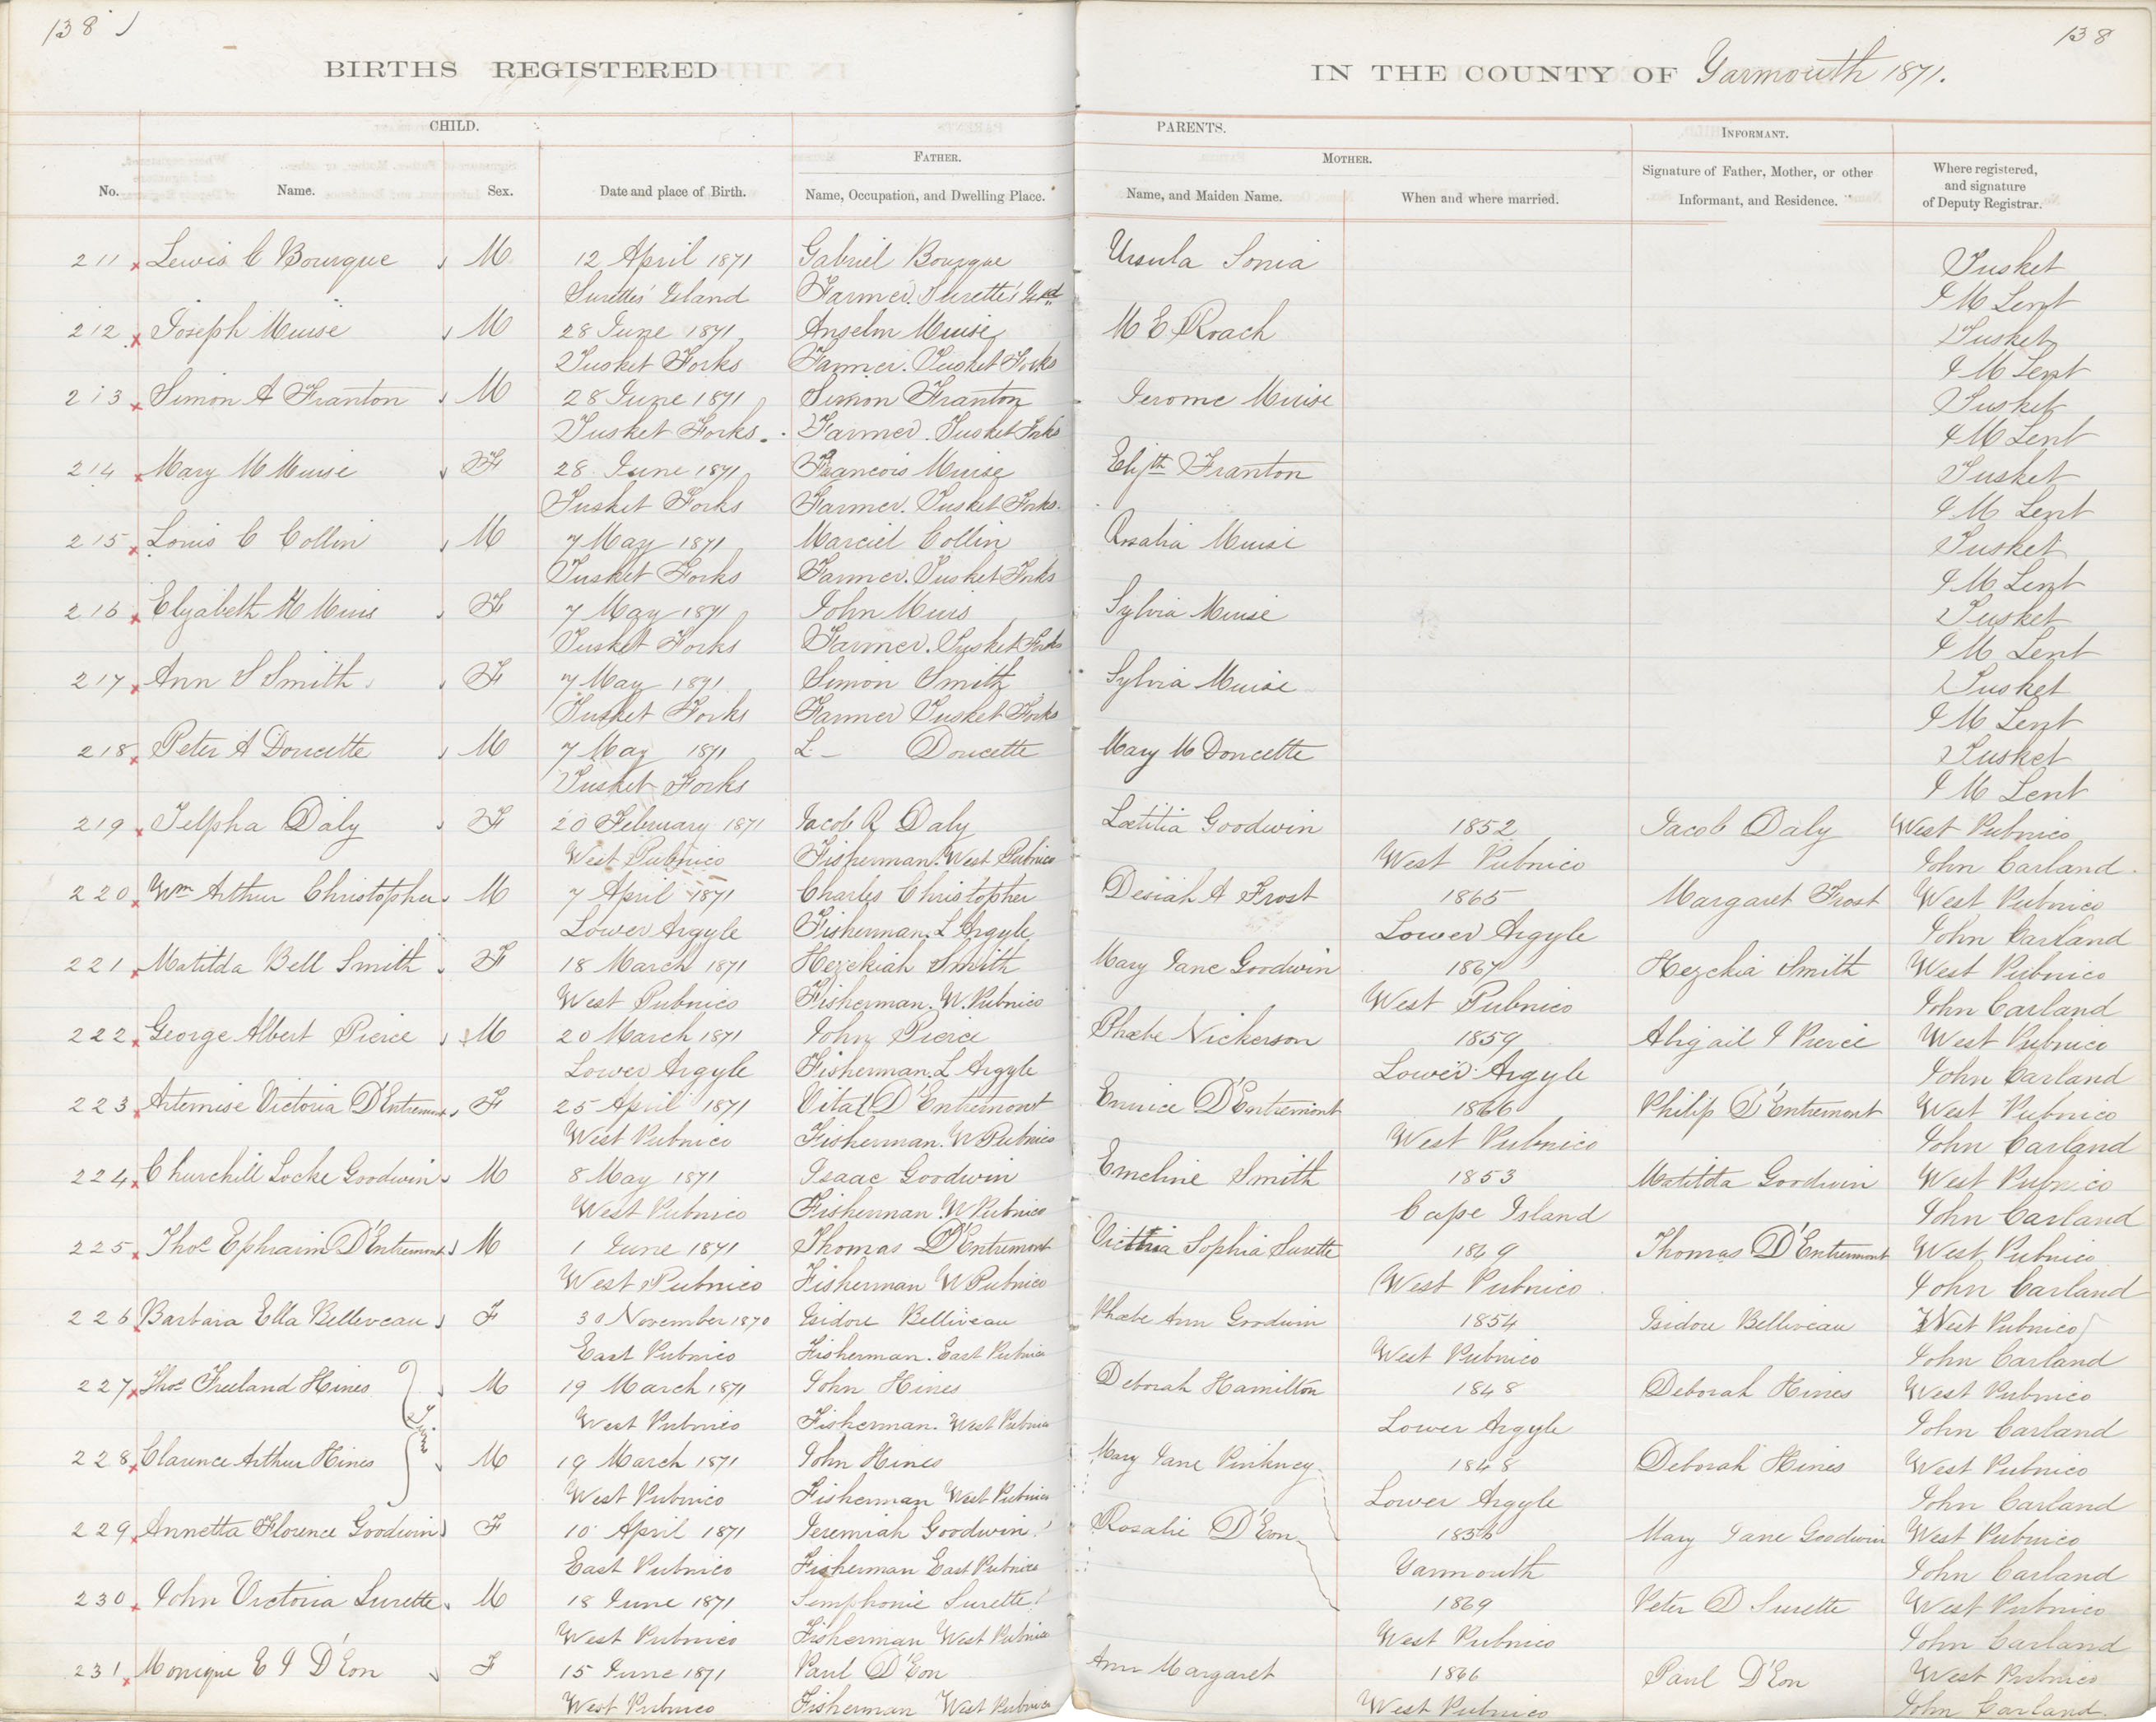 138
138
BIRTHS REGISTERED IN THE COUNTY OF Yarmouth 1871.
CHILD. PARENTS. INFORMANT.
FATHER. MOTHER.
No. Name. Sex. Date and place of Birth. Name, Occupation, and Dwelling Place. Name, and Maiden Name. When and where married. Signature of Father, Mother, or other Informant, and Residence. Where registered, and signature of Deputy Registrar.
211 Lewis C Bourque M 12 April 1871 Gabriel Bourque Ursula Sonia Tusket
Surettes' Island Farmer. Surettes' Isld J M Lent
212 Joseph Muise M 28 June 1871 Anselm Muise M E Roach Tusket
Tusket Forks Farmer. Tusket Forks J M Lent
213 Simon A Franton M 28 June 1871 Simon Franton Jerome Muise Tusket
Tusket Forks. Farmer. Tusket Forks J M Lent
214 Mary M Muise F 28 June 1871 Francois Muise Elizth Franton Tusket
Tusket Forks Farmer. Tusket Forks. J M Lent
215 Louis C Collin M 7 May 1871 Marciel Collin Rosalia Muise Tusket
Tusket Forks Farmer. Tusket Forks J M Lent
216 Elizabeth M Muis F 7 May 1871 John Muis Sylvia Muise Tusket
Tusket Forks Farmer. Tusket Forks J M Lent
217 Ann S Smith F 7 May 1871 Simon Smith Sylvia Muise Tusket
Tusket Forks Farmer Tusket Forks J M Lent
218 Peter A Doucette M 7 May 1871 L — Doucette Mary M Doucette Tusket
Tusket Forks J M Lent
219 Telpha Daly F 20 February 1871 Jacob R Daly Lœtitia Goodwin 1852 Jacob Daly West Pubnico
West Pubnico Fisherman. West Pubnico West Pubnico John Carland.
220 Wm Arthur Christopher M 7 April 1871 Charles Christopher Desiah A Frost 1865 Margaret Frost West Pubnico
Lower Argyle Fisherman. L Argyle Lower Argyle John Carland
221 Matilda Bell Smith F 18 March 1871 Hezekiah Smith Mary Jane Goodwin 1867 Hezekia Smith West Pubnico
West Pubnico Fisherman. W. Pubnico West Pubnico John Carland
222 George Albert Pierce M 20 March 1871 John Pierce Phœbe Nickerson 1859 Abigail J Pierce West Pubnico
Lower Argyle Fisherman. L Argyle Lower Argyle John Carland
223 Artemise Victoria D'Entremont F 25 April 1871 Vital D'Entremont Eunice D'Entremont 1866 Philip D'Entremont West Pubnico
West Pubnico Fisherman. W Pubnico West Pubnico John Carland
224 Churchill Locke Goodwin M 8 May 1871 Isaac Goodwin Emeline Smith 1853 Matilda Goodwin West Pubnico
West Pubnico Fisherman W Pubnico Cape Island John Carland
225 Thos Ephraim D'Entremont M 1 June 1871 Thomas D'Entremont Victtria Sophia Surette 1869 Thomas D'Entremont West Pubnico
West Pubnico Fisherman W Pubnico West Pubnico John Carland
226 Barbara Ella Belliveau F 30 November 1870 Isidore Belliveau Phœbe Ann Goodwin 1854 Isidore Belliveau West Pubnico
East Pubnico Fisherman. East Pubnico West Pubnico John Carland
227 Thos Freeland Hines M 19 March 1871 John Hines Deborah Hamilton 1848 Deborah Hines West Pubnico
Twins West Pubnico Fisherman. West Pubnico Lower Argyle John Carland
228 Clarence Arthur Hines M 19 March 1871 John Hines Mary Jane Pinkney 1848 Deborah Hines West Pubnico
West Pubnico Fisherman West Pubnico Lower Argyle John Carland
229 Annetta Florence Goodwin F 10 April 1871 Jeremiah Goodwin Rosalie D'Eon 1856 Mary Jane Goodwin West Pubnico
East Pubnico Fisherman East Pubnico Yarmouth John Carland
230 John Victoria Surette M 18 June 1871 Semphonie Surette 1869 Peter D Surette West Pubnico
West Pubnico Fisherman West Pubnico West Pubnico John Carland
231 Monique E J D'Eon F 15 June 1871 Paul D'Eon Ann Margaret 1866 Paul D'Eon West Pubnico
West Pubnico Fisherman West Pubnico West Pubnico John Carland.